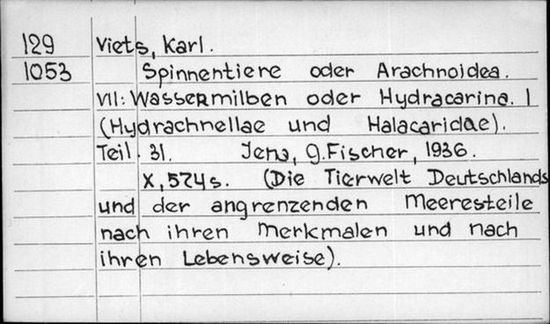 129 Viets, Karl.
1053 Spinnentiere oder Arachnoidea.
VII: Wassermilben oder Hydracarina. I
(Hydrachnellae und Halacaridae).
Teil. 31. Jena, G.Fischer, 1936.
X, 574 s. (Die Tierwelt Deutschlands
und der angrenzenden Meeresteile
nach ihren Merkmalen und nach
ihren Lebensweise).